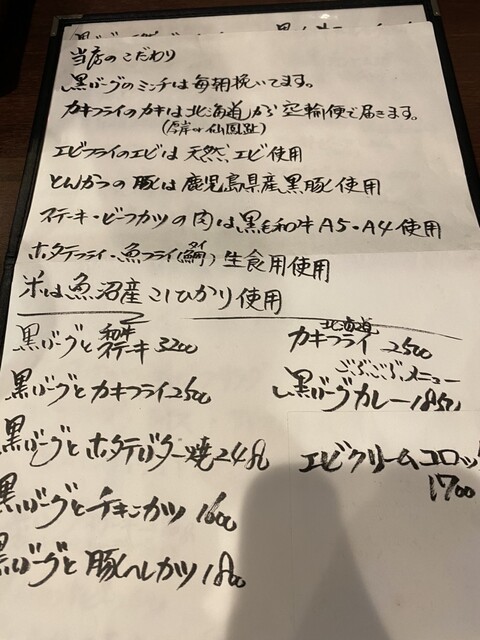 当店のこだわり
黒バーグのミンチは毎朝挽いてます。
カキフライのカキは北海道から空輸便で届きます。
(厚岸や仙鳳趾)
エビフライのエビは天然エビ使用
とんかつの豚は鹿児島県産黒豚使用
ステーキ・ビーフカツの肉は黒毛和牛A5・A4使用
ホタテフライ・魚フライ(鯛タイ)生食用使用
米は魚沼産こしひかり使用
黒バーグと和牛ステーキ3200
黒バーグとカキフライ2500
黒バーグとホタテバター焼
黒バーグとチキンカツ1600
黒バーグと豚ヒレカツ1800
北海道
カキフライ2500
ごぶごぶメニュー
黒バーグカレー1850
エビクリームコロッ
1700